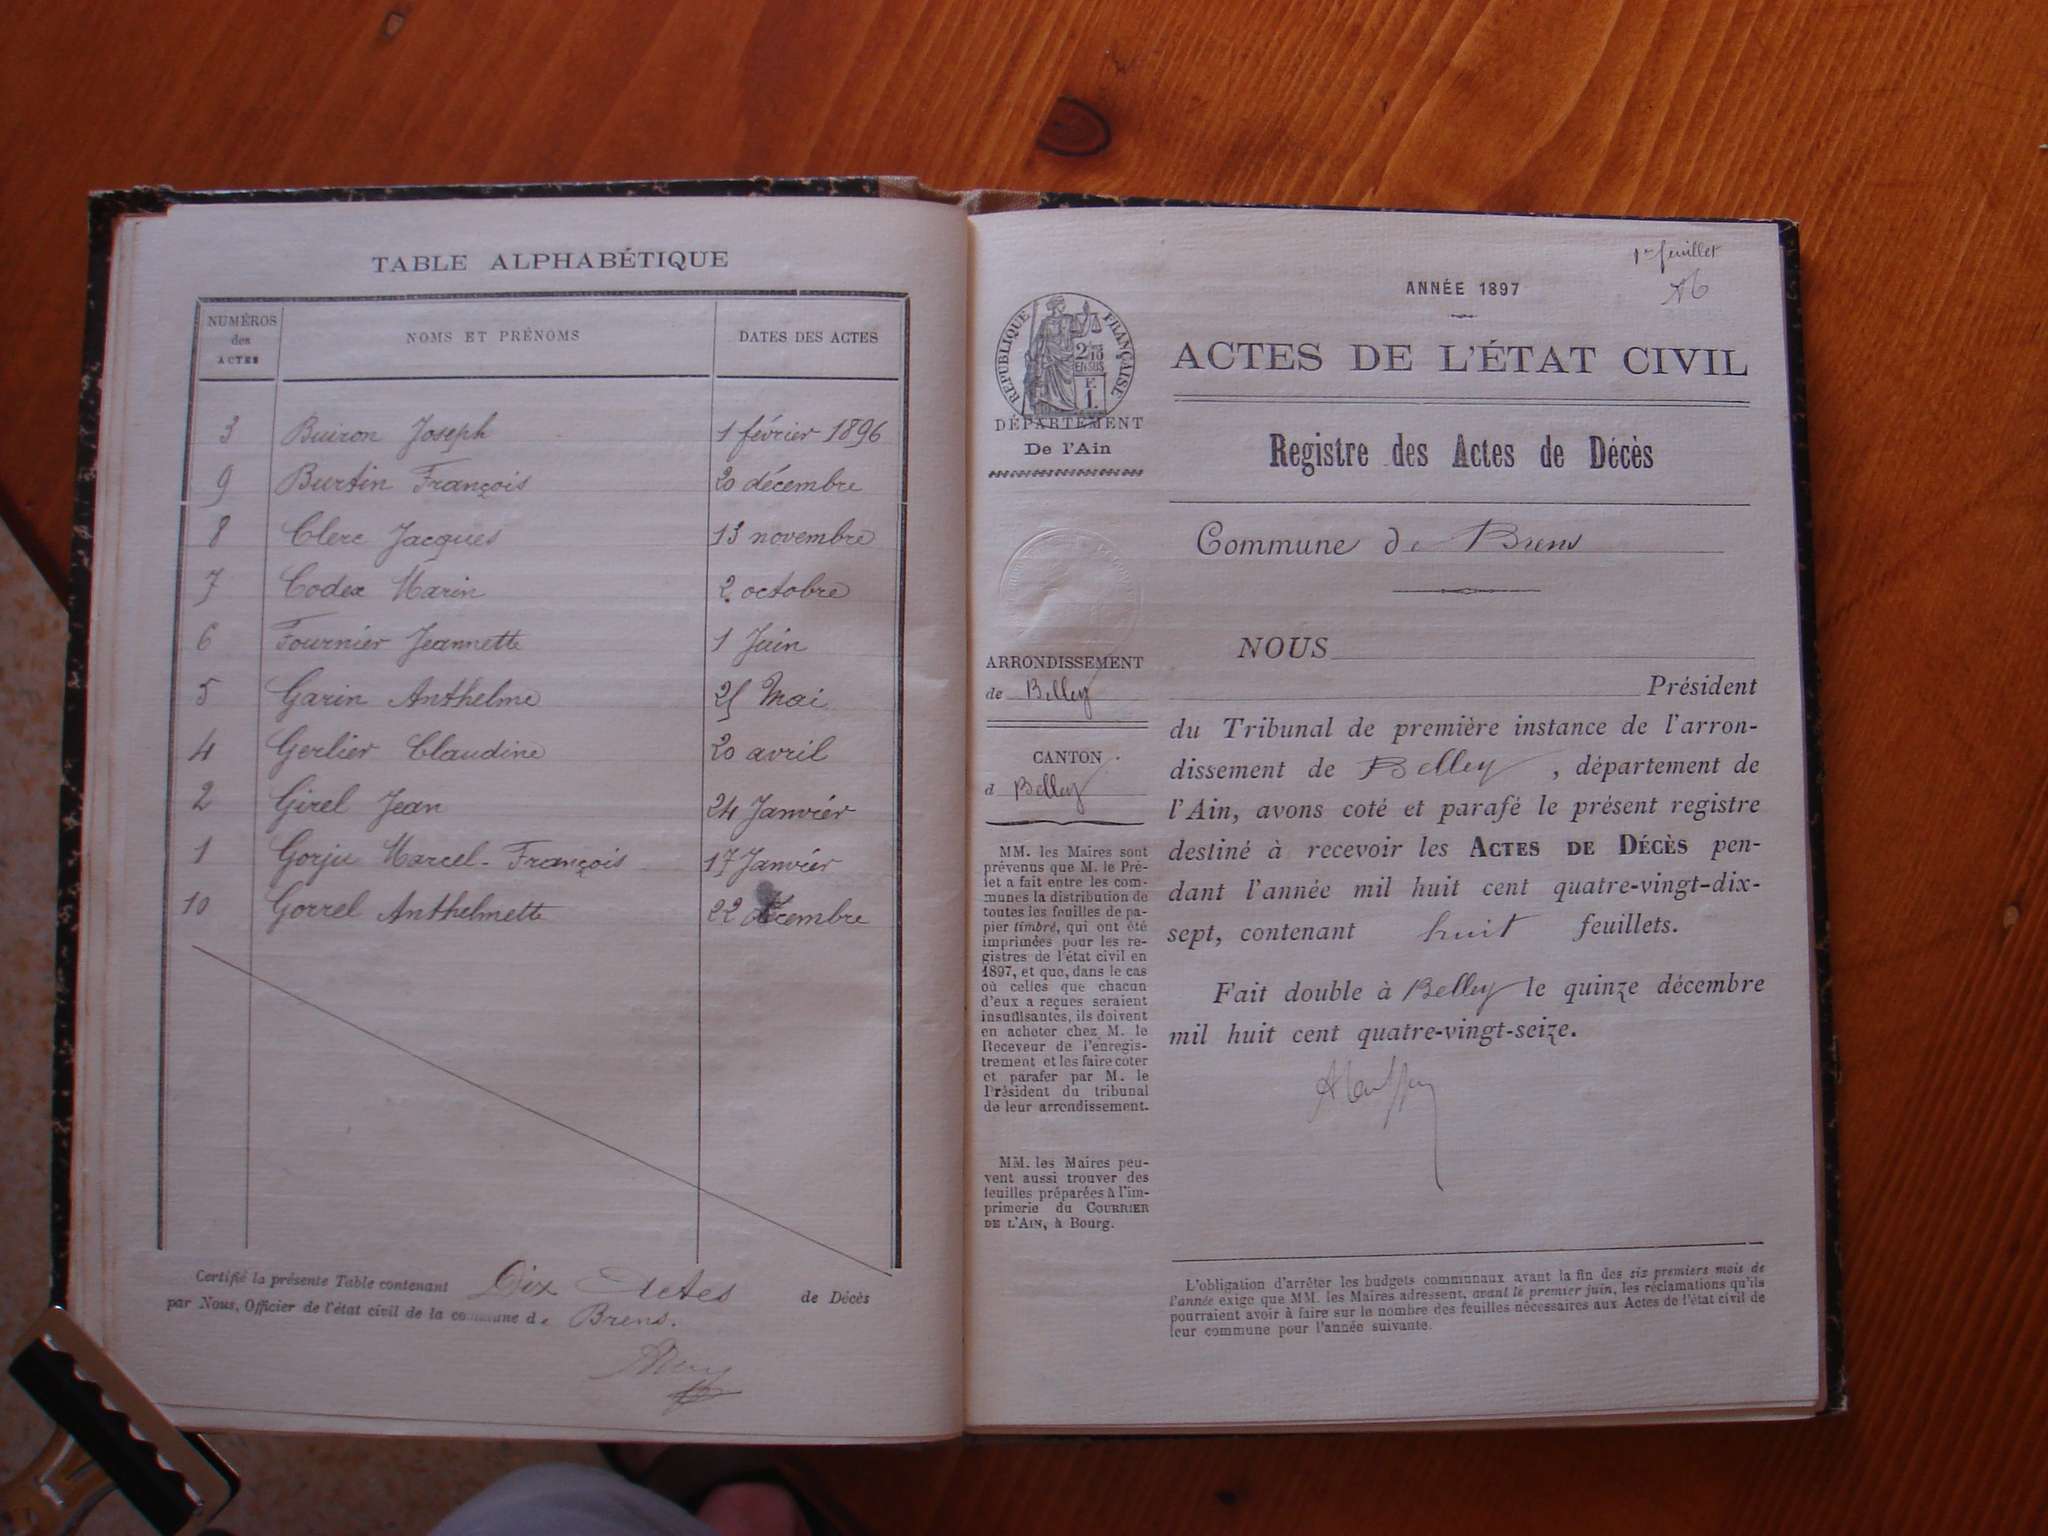 TABLE ALPHABÉTIQUE
NUMÉROS des ACTES NOMS ET PRÉNOMS DATES DES ACTES
3 Buiron Joseph 1 février 1896
9 Burtin François 20 décembre
8 Clerc Jacques 13 novembre
7 Codex Marin 2 octobre
6 Fournier Jeannette 1 Juin
5 Garin Anthelme 25 Mai
4 Gerlier Claudine 20 avril
2 Girel Jean 24 Janvier
1 Gorju Marcel-François 17 Janvier
10 Gorrel Anthelmette 22 décembre
Certifié la présente Table contenant Dix Actes de Décès
par Nous, Officier de l'état civil de la commune de Brens.
1er feuillet
ANNÉE 1897
ACTES DE L'ÉTAT CIVIL
Registre des Actes de Décès
Commune de Brens
RÉPUBLIQUE FRANÇAISE
2/10 EN SUS
F. 1.
DÉPARTEMENT
De l'Ain
ARRONDISSEMENT
de Belley
CANTON
d Belley
MM. les Maires sont
prévenus que M. le Pré-
fet a fait entre les com-
munes la distribution de
toutes les feuilles de pa-
pier timbré, qui ont été
imprimées pour les re-
gistres de l'état civil en
1897, et que, dans le cas
où celles que chacun
d'eux a reçues seraient
insuffisantes, ils doivent
en acheter chez M. le
Receveur de l'enregis-
trement et les faire coter
et parafer par M. le
Président du tribunal
de leur arrondissement.
MM. les Maires peu-
vent aussi trouver des
feuilles préparées à l'im-
primerie du COURRIER
DE L'AIN, à Bourg.
NOUS
Président
du Tribunal de première instance de l'arron-
dissement de Belley, département de
l'Ain, avons coté et parafé le présent registre
destiné à recevoir les ACTES DE DÉCÈS pen-
dant l'année mil huit cent quatre-vingt-dix-
sept, contenant huit feuillets.
Fait double à Belley le quinze décembre
mil huit cent quatre-vingt-seize.
L'obligation d'arrêter les budgets communaux avant la fin des six premiers mois de
l'année exige que MM. les Maires adressent, avant le premier juin, les réclamations qu'ils
pourraient avoir à faire sur le nombre des feuilles nécessaires aux Actes de l'état civil de
leur commune pour l'année suivante.